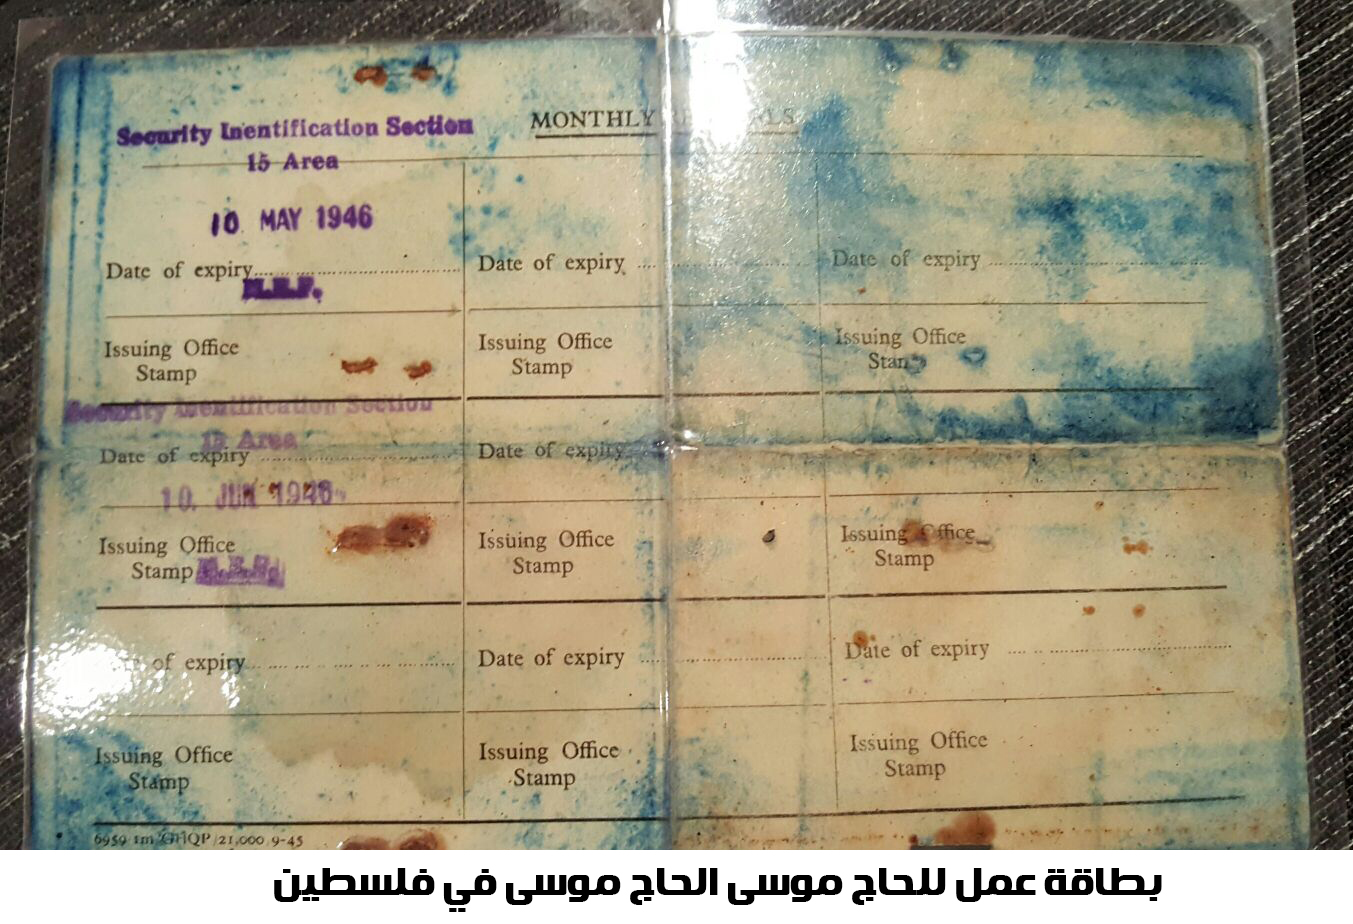 Security Inentification Section
15 Area
MONTHLY
10 MAY 1946
Date of expiry
M.E.F.
Date of expiry
Date of expiry
Issuing Office
Stamp
Issuing Office
Stamp
Issuing Office
Security Inentification Section
15 Area
Date of expiry
Date of expiry
10. JUN 1946
Issuing Office
Stamp M.E.F.
Issuing Office
Stamp
Issuing Office
Stamp
of expiry
Date of expiry
Date of expiry
Issuing Office
Stamp
Issuing Office
Stamp
Issuing Office
Stamp
6959 1m GHQP/21,000 9-45
بطاقة عمل للحاج موسى الحاج موسى في فلسطين